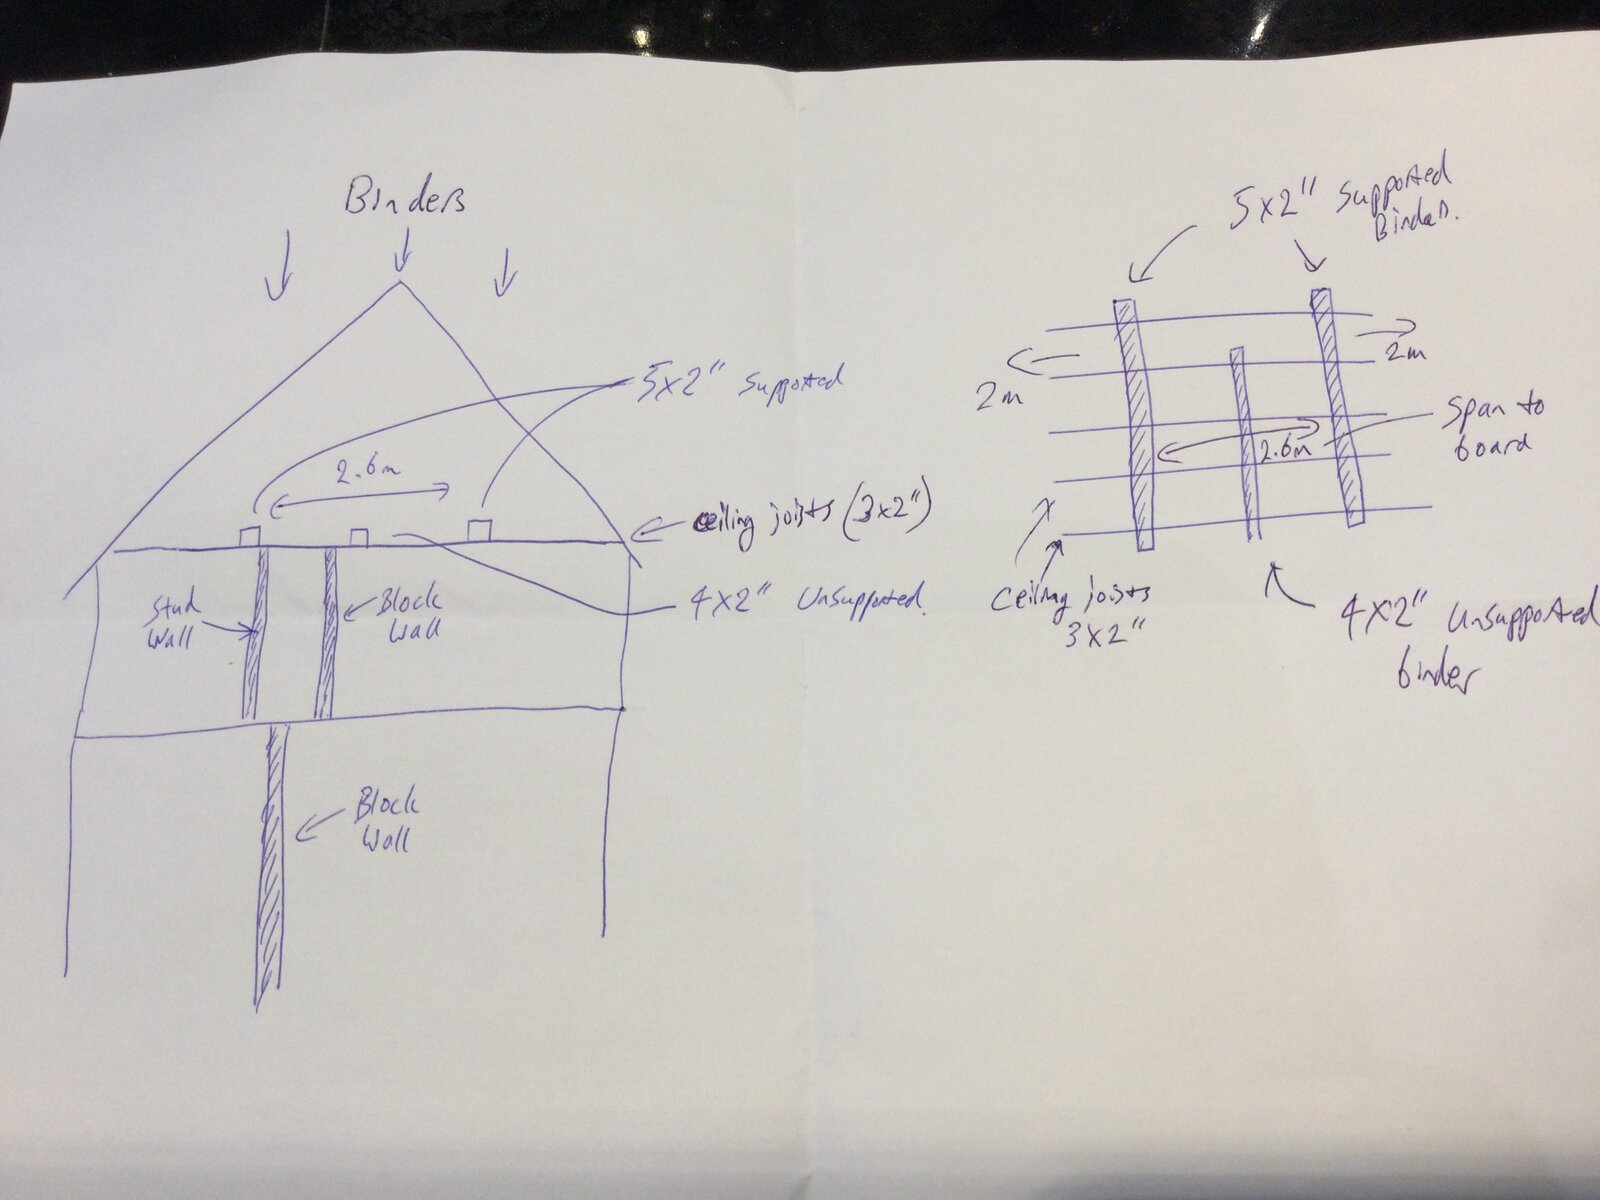 Binders
5x2" Supported
2.6m
ceiling joists (3x2")
4x2" Unsupported.
Stud
Wall
Block
Wall
Block
Wall
5x2" Supported
Binders.
2m
2m
2.6m
Span to
board
Ceiling joists
3x2"
4x2" Unsupported
binder